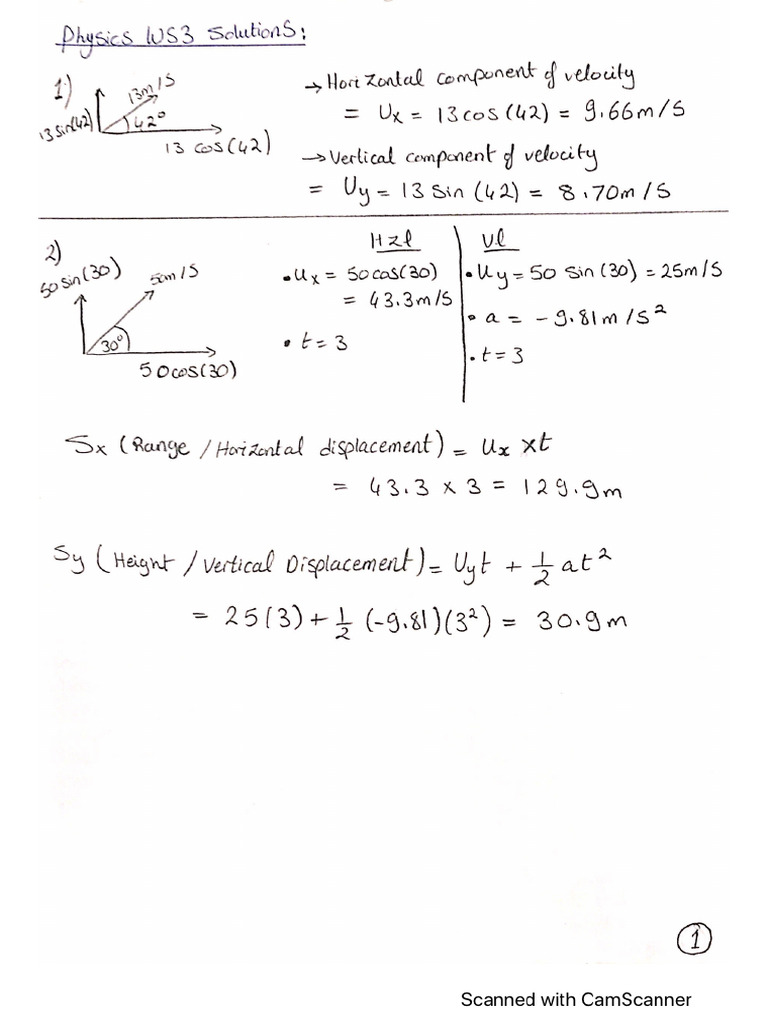 Physics WS3 Solutions:
1)
13m/s
13 sin(42)
42°
13 cos(42)
→ Horizontal component of velocity
= Ux = 13cos(42) = 9.66m/s
→ Vertical component of velocity
= Uy = 13 sin (42) = 8.70m/s
2)
50 sin(30)
50m/s
30°
50cos(30)
Hzl
• Ux = 50cos(30)
= 43.3m/s
• t = 3
Vl
• Uy = 50 sin (30) = 25m/s
• a = -9.81m/s²
• t = 3
Sx (Range / Horizontal displacement) = Ux × t
= 43.3 × 3 = 129.9m
Sy (Height / Vertical Displacement) = Uyt + 1/2 at²
= 25(3) + 1/2 (-9.81)(3²) = 30.9m
1
Scanned with CamScanner